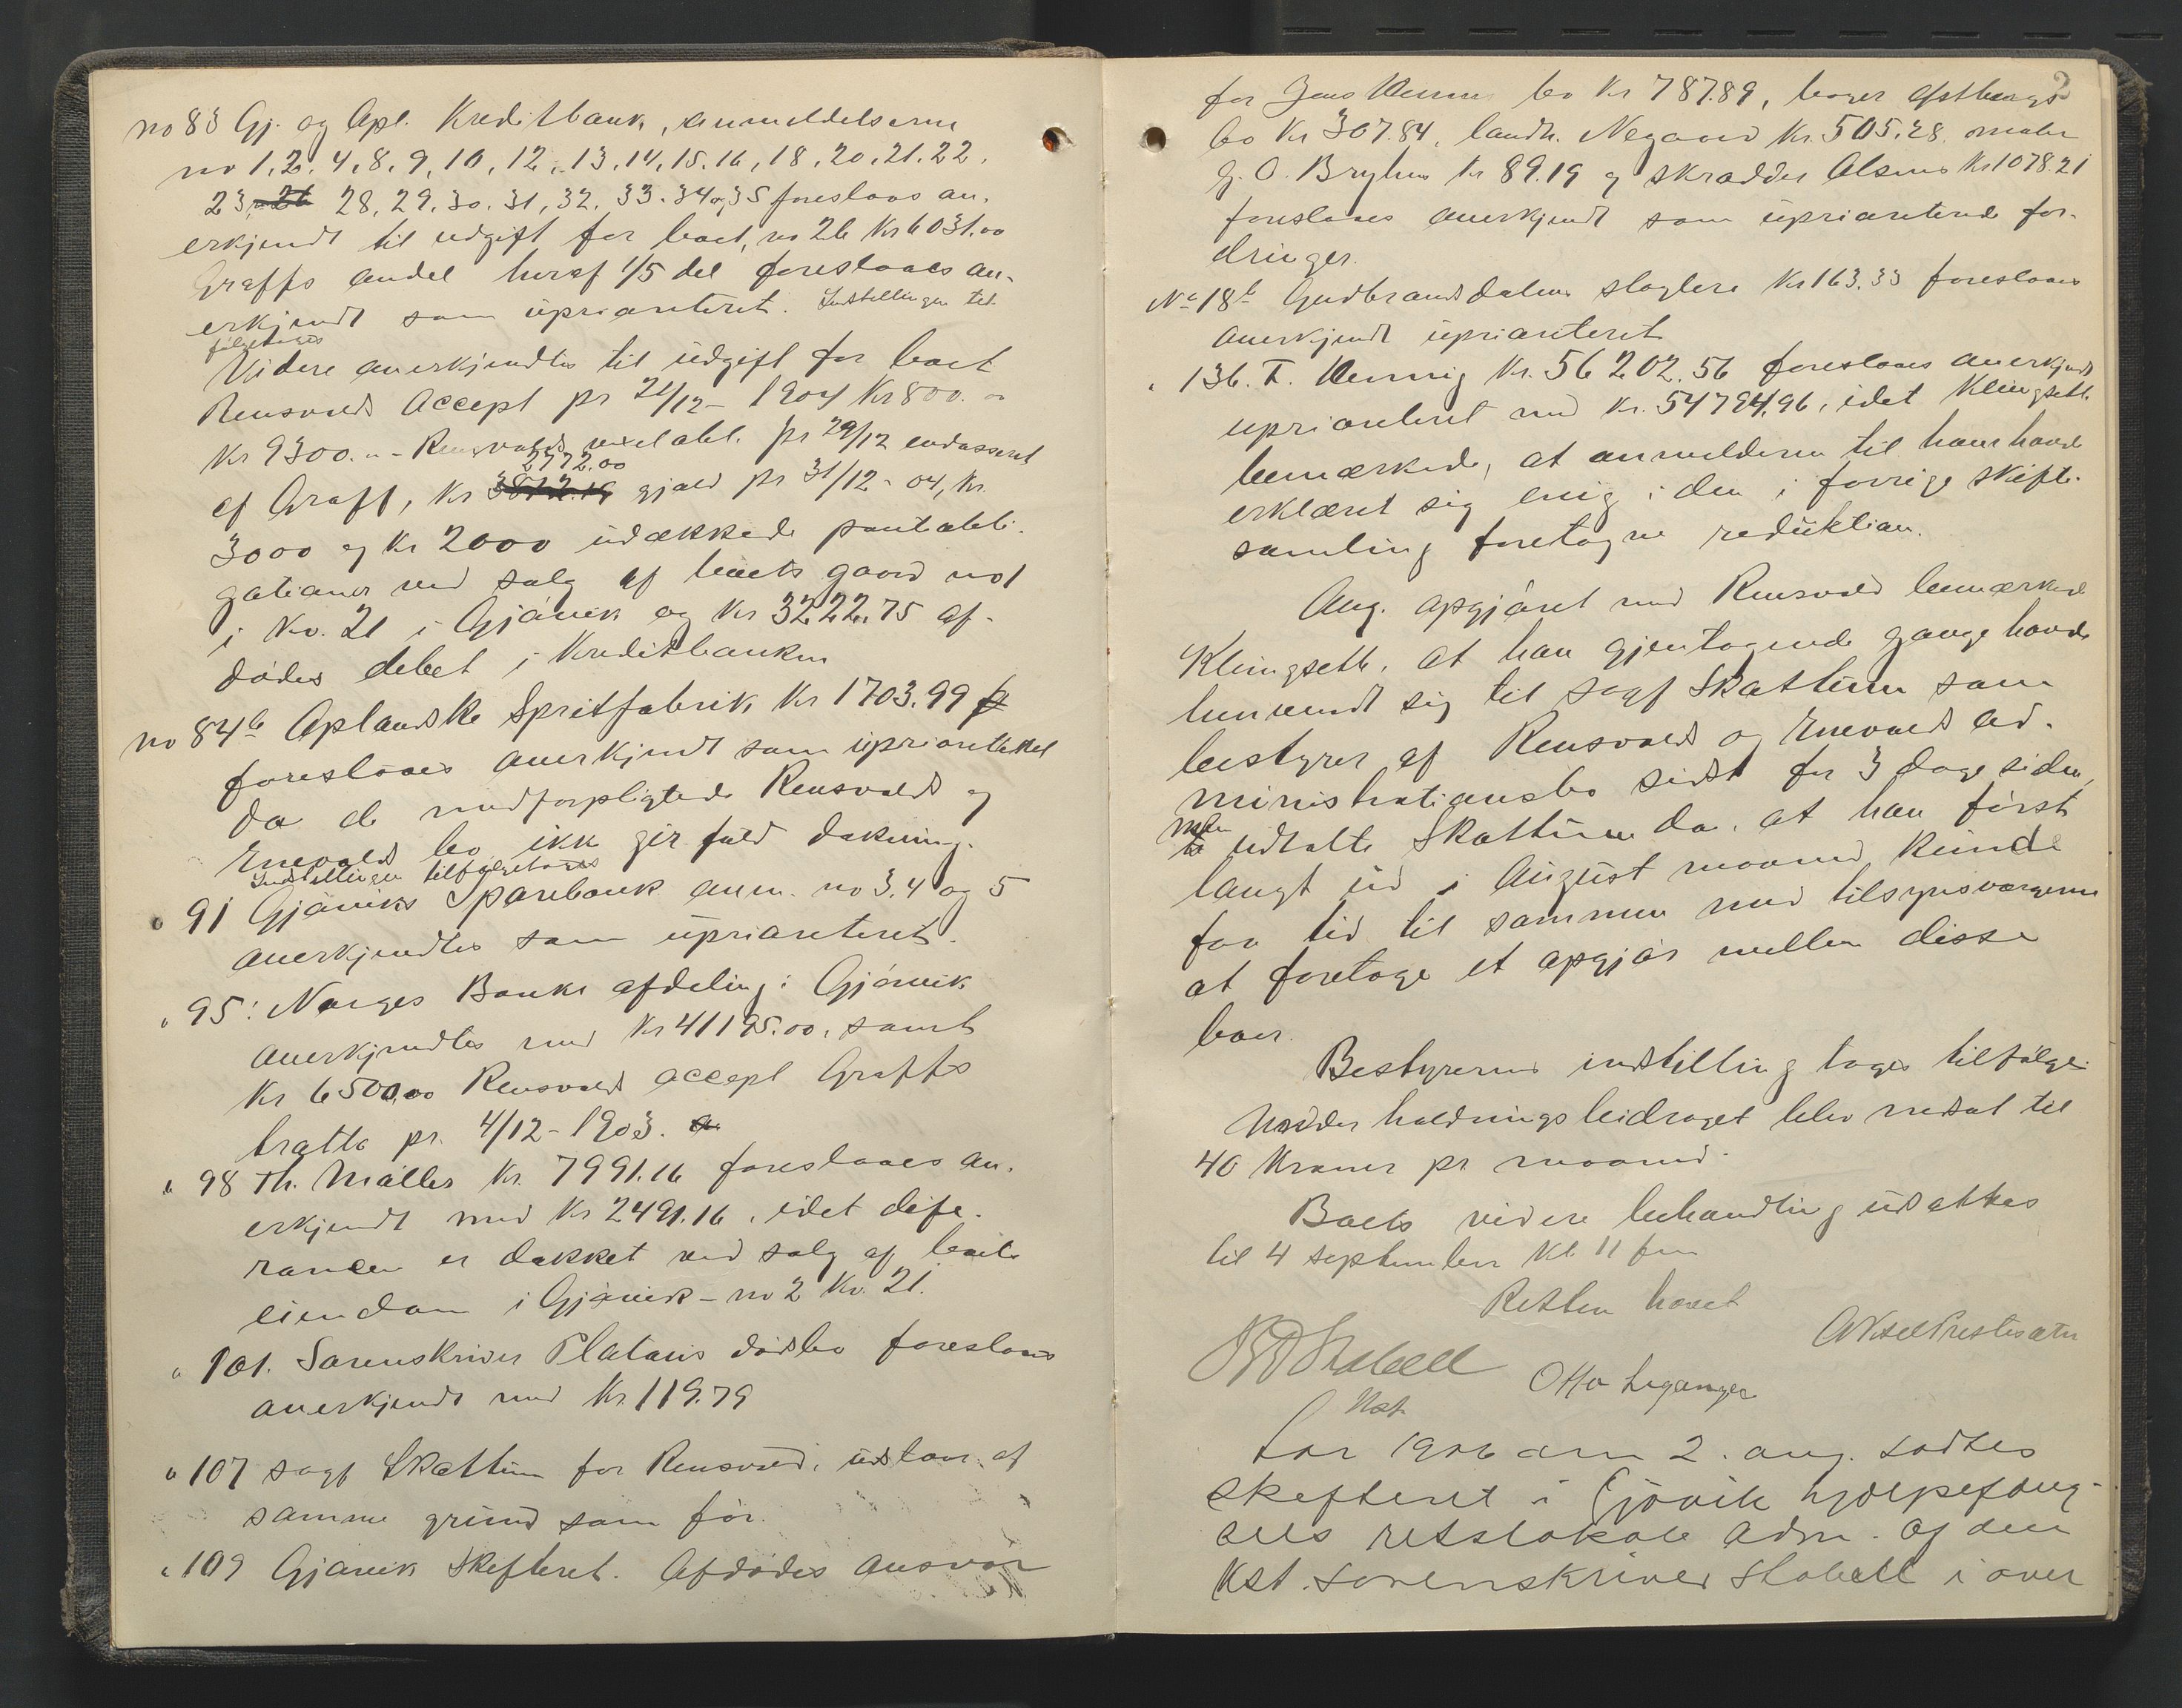 no 83 Gj. og Opl. Kreditbank, anmeldelserne
no 1, 2, 4, 8, 9, 10, 12, 13, 14, 15, 16, 18, 20, 21, 22,
23, 28, 29, 30, 31, 32, 33, 34 og 35 foreslaaes an-
erkjendt til udgift for boet, no 26 Kr 6031.00
Graffs andel heraf 1/5 del foreslaaes an-
erkjendt som uprioriteret. Indstillingen til
følgetages
Videre anerkjendtes til udgift for boet
Rensvolds Accept pr 21/12 - 1904 Kr 800.00
Kr 9300.00 - Rensvolds vexelobl. pr 29/12 endosseret
2772.00
af Graff, Kr 3872.19 gjæld pr 31/12 - 04, Kr.
3000 og Kr 2000 udækkede pantobli-
gationer ved salg af boets gaard no 1
i Kv. 21 i Gjøvik og Kr 3222.75 af-
dødes debet i Kreditbanken
no 84 b Oplandske Spritfabrik Kr 1703.99
foreslaaes anerkjendt som uprioritetet
da de medforpligtede Rensvolds og
Enevolds bo ikke gir fuld dækning.
Indstillingen tilfølgetages
" 91 Gjøviks Sparebank anm. no 3, 4 og 5
anerkjendtes som uprioriteret.
" 95: Norges Banks afdeling i Gjøvik
anerkjendtes med Kr 41195.00, samt
Kr 6500.00 Rensvolds accept Graffs
tratta pr. 4/12 - 1903.
" 98 Th. Møller Kr. 7991.16 foreslaaes an-
erkjendt med Kr 2491.16, idet dife-
rancen er dækket ved salg af boets
eiendom i Gjøvik - no 2 Kv. 21.
" 101. Sorenskriver Platous dødsbo foreslaaes
anerkjendt med Kr 119.79
" 107 sagf Skattum for Rensvold, udstaar af
samme grund som før.
" 109 Gjøvik Skifteret. Afdødes ansvar
2
for Jens bo Kr 787.89, bager Østbergs
bo Kr 307.84, landh. Negaard Kr. 505.28, maler
G. O. Bryhns Kr 89.19 og skrædder Olsens Kr 1078.21
foreslaaes anerkjendt som uprioriterede for-
dringer.
No 18 b Gudbrandsdalens slagteri Kr 163.33 foreslaaes
anerkjendt uprioriteret
" 136. T. Kr. 56202.56 foreslaaes anerkjendt
uprioriteret med Kr. 54794.96, idet Klingseth
bemærkede, at anmelderen til ham havde
erklæret sig enig i den i forrige skifte-
samling foretagne reduktion.
Ang. opgjøret med Rensvold bemærkede
Klingseth, at han gjentagende gange havde
henvendt sig til sagf Skattum som
bestyrer af Rensvolds og Enevolds ad-
ministrationsbo sidst for 3 dage siden,
men
udtalte Skattum da, at han først
langt ud i August maaned kunde
faa tid til sammen med tilsynsværgerne
at foretage et opgjør mellem disse
boer.
Bestyrerens indstilling toges tilfølge.
Underholdningsbidraget blev nedsat til
40 Kroner pr maaned.
Boets videre behandling udsattes
til 4 september Kl 11 fm
Retten hævet
Stabell
Kst.
Otto Leganger
Aksel Prestesæter
Aar 1906 den 2. aug. sattes
skifteret i Gjøvik hjælpefæng-
sels retslokale adm. af den
Kst. sorenskriver Stabell i over